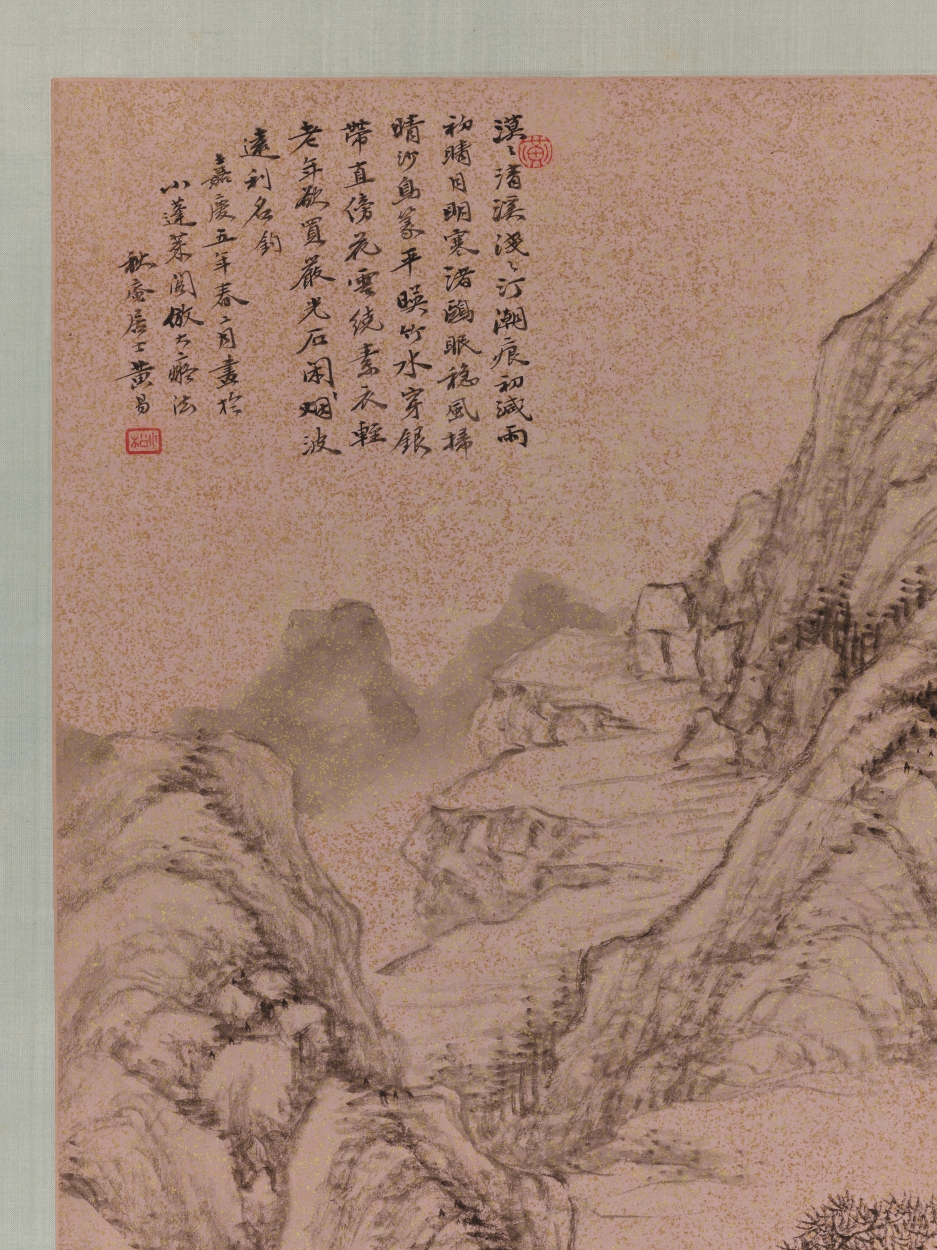 漠〻清溪淺〻汀潮痕初減雨
初晴月明寒渚鷗眠穩風掃
晴沙鳥篆平映竹水穿銀
帶直傍花雲繞素衣輕
老年欲買嚴光石閑〻烟波
遠利名釣
嘉慶五年春二月畫於
小蓬萊閣倣大癡法
秋盦居士黃易
黃
小松